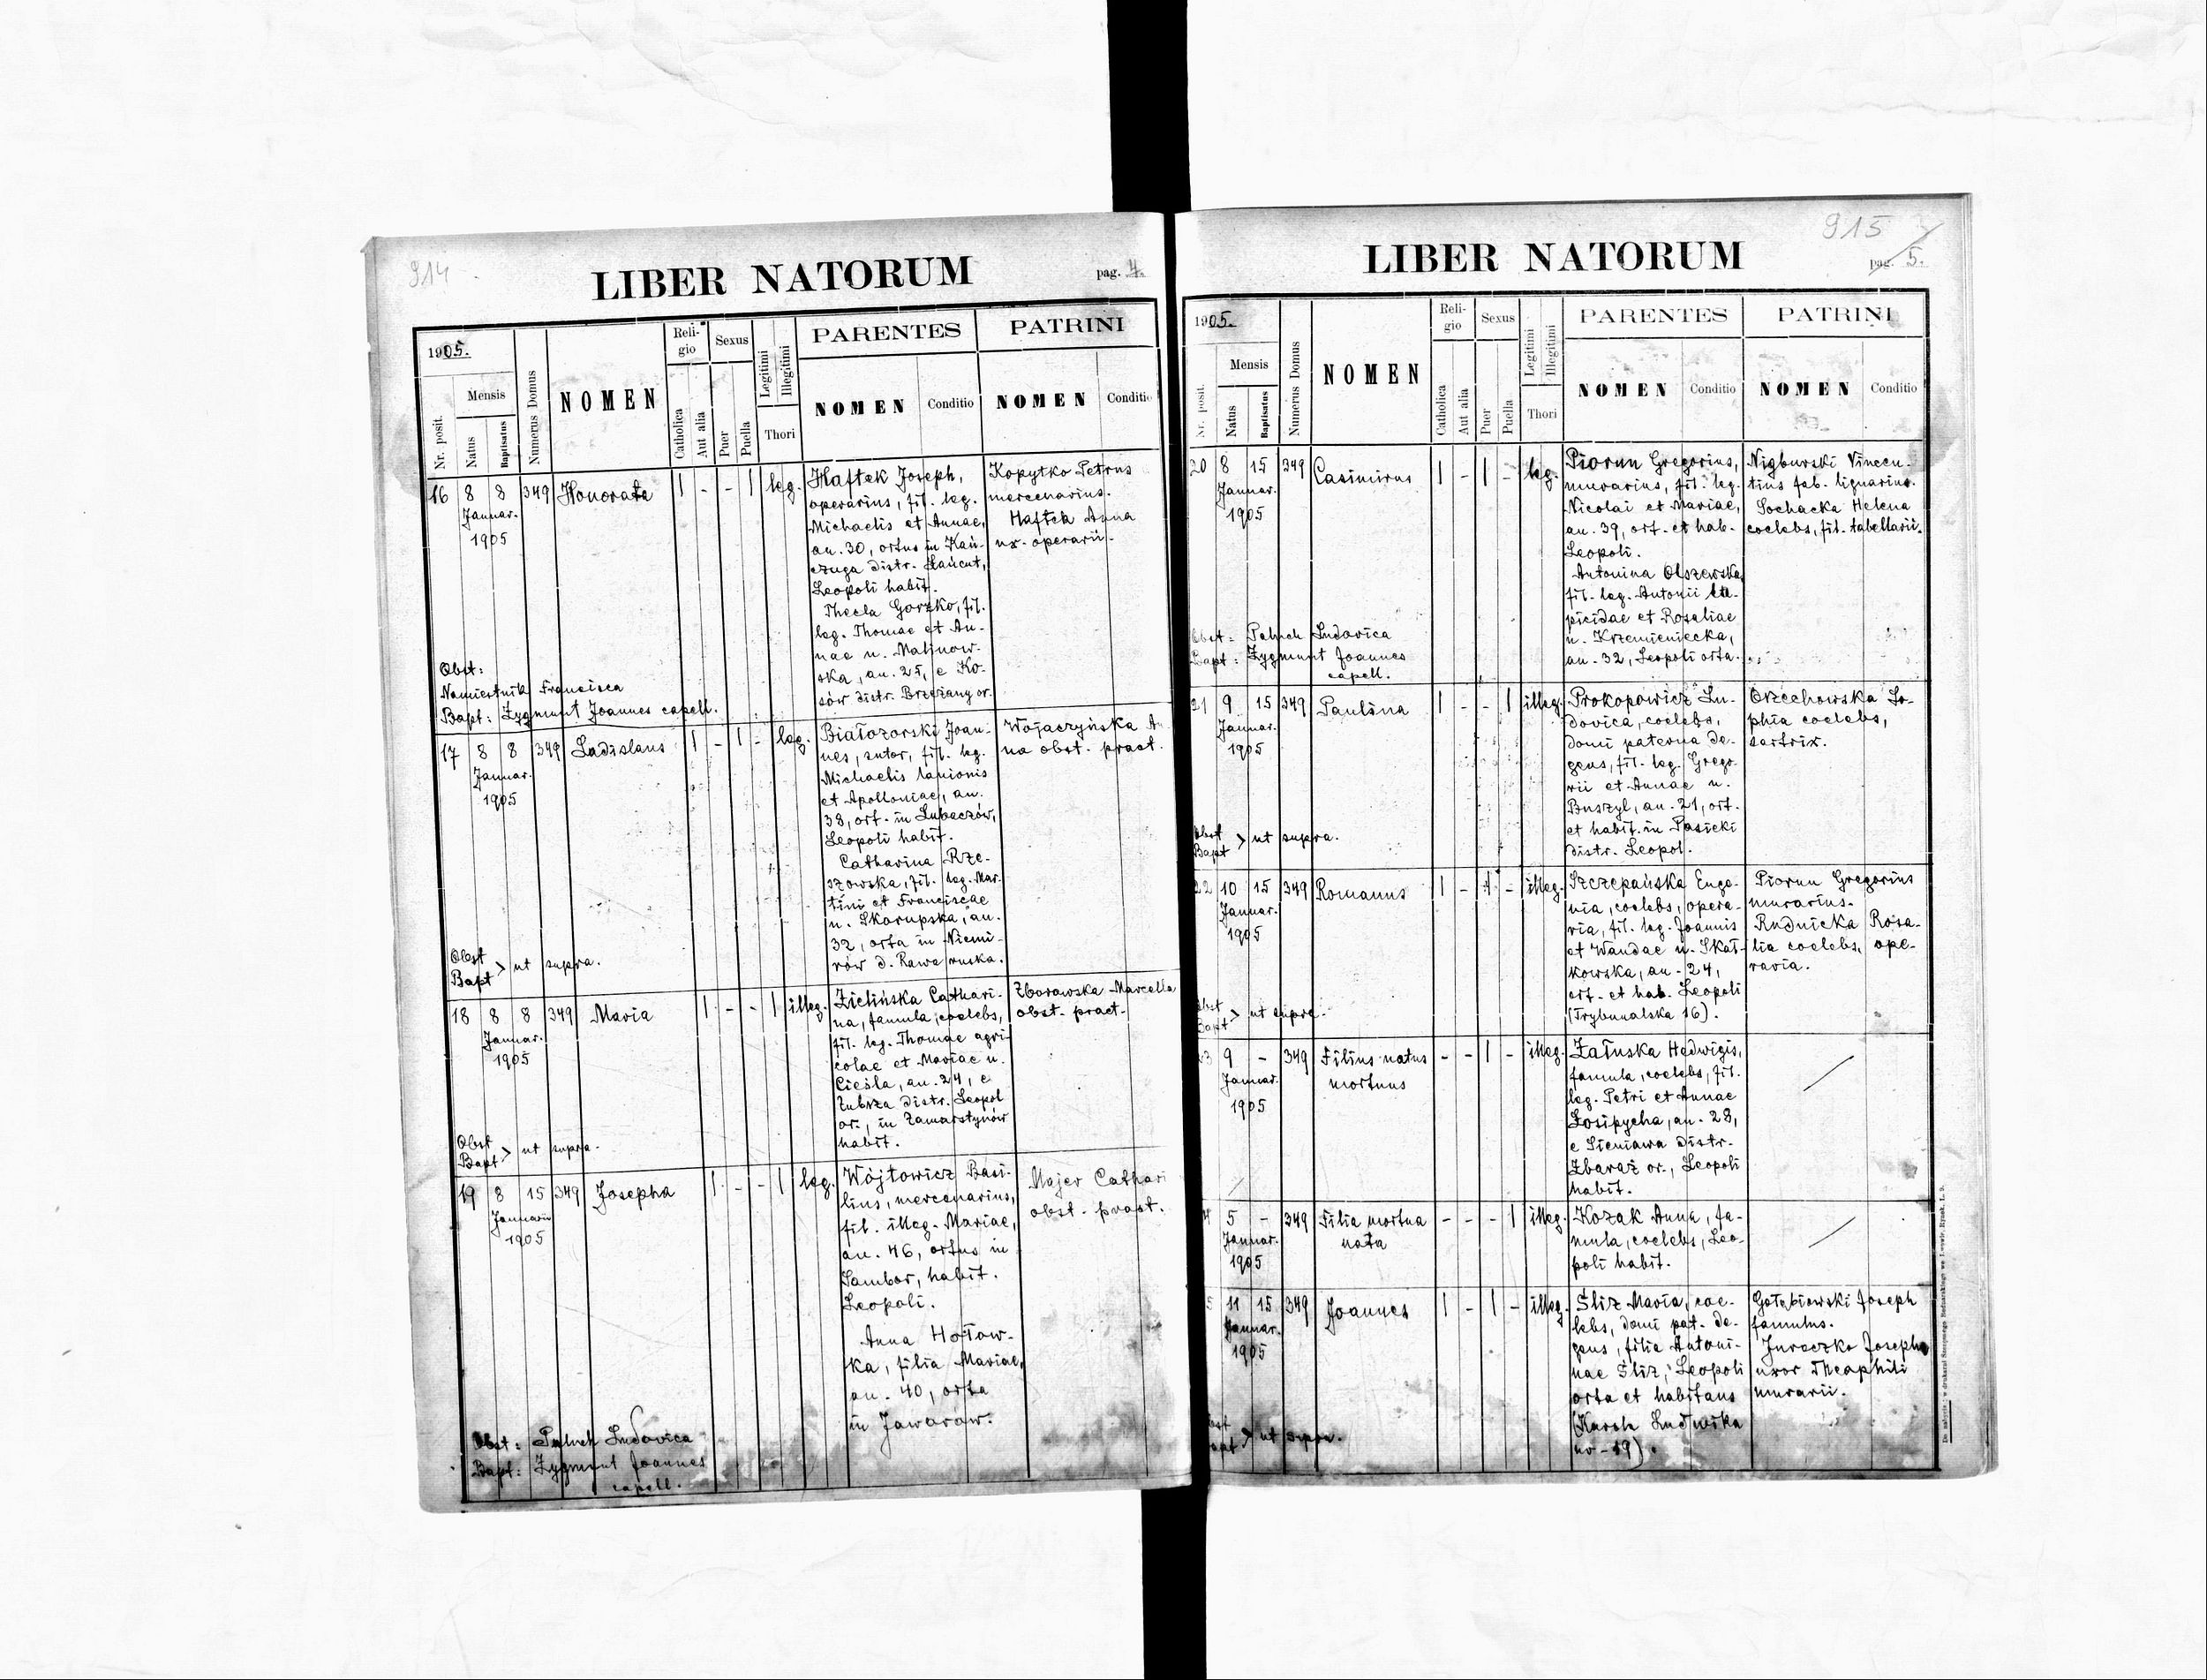 914
LIBER NATORUM
pag. 4.
1905.
Nr. posit.
Mensis
Natus
Baptisatus
Numerus Domus
NOMEN
Religio
Catholica
Aut alia
Sexus
Puer
Puella
Legitimi
Illegitimi
Thori
PARENTES
NOMEN
Conditio
PATRINI
NOMEN
Conditio
16 8 8 349 Honorata 1 - - 1 leg.
Januar.
1905
Haftek Joseph,
operarius, fil. leg.
Michaelis et Annae,
an. 30, ortus in Kań-
czuga distr. Łańcut,
Leopoli habit.
Thecla Gorzko, fil.
leg. Thomae et An-
nae n. Malinow-
ska, an. 25, e Ko-
sów distr. Brzeżany or.
Kopytko Petrus
mercenarius.
Haftek Anna
ux. operarii.
Obst:
Namiestnik Francisca
Bapt: Zygmunt Joannes capell.
17 8 8 349 Ladislaus 1 - 1 - leg.
Januar.
1905
Białozorski Joan-
nes, sutor, fil. leg.
Michaelis lanionis
et Apolloniae, an.
38, ort. in Lubaczów,
Leopoli habit.
Catharina Rze-
szowska, fil. leg. Mar-
tini et Franciscae
n. Skarupska, an.
32, orta in Niemi-
rów d. Rawa ruska.
Wojaczyńska A-
na obst. pract.
Obst
Bapt > ut supra.
18 8 8 349 Maria 1 - - 1 illeg.
Januar.
1905
Zielińska Cathari-
na, famula, coelebs,
fil. leg. Thomae agri-
colae et Mariae n.
Cieśla, an. 24, e
Zubrza distr. Leopol
or., in Zamarstynów
habit.
Zborowska Marcella
obst. pract.
Obst
Bapt > ut supra.
19 8 15 349 Josepha 1 - - 1 leg.
Januarii
1905
Wójtowicz Basi-
lius, mercenarius,
fil. illeg. Mariae,
an. 46, ortus in
Sambor, habit.
Leopoli.
Anna Hołow-
ka, filia Mariae,
an. 40, orta
in Jaworów.
Majer Cathari
obst. pract.
Obst: Paluch Ludovica
Bapt: Zygmunt Joannes
capell.
915
LIBER NATORUM
pag. 5.
1905.
Nr. posit.
Mensis
Natus
Baptisatus
Numerus Domus
NOMEN
Religio
Catholica
Aut alia
Sexus
Puer
Puella
Legitimi
Illegitimi
Thori
PARENTES
NOMEN
Conditio
PATRINI
NOMEN
Conditio
20 8 15 349 Casimirus 1 - 1 - leg.
Januar.
1905
Piorun Gregorius,
murarius, fil. leg.
Nicolai et Mariae,
an. 39, ort. et hab.
Leopoli.
Antonina Olszewska,
fil. leg. Antonii
picidae et Rosaliae
n. Krzemieniecka,
an. 32, Leopoli orta.
Niǫburski Vincen-
tius fab. lignarius.
Sochacka Helena
coelebs, fil. tabellarii.
Obst: Paluch Ludovica
Bapt: Zygmunt Joannes
capell.
21 9 15 349 Paulina 1 - - 1 illeg.
Januar.
1905
Prokopowicz Lu-
dovica, coelebs,
domi paterna de-
gens, fil. leg. Grego-
rii et Annae n.
Buszyl, an. 21, ort.
et habit. in Pasieki
distr. Leopol.
Orzechowska So-
phia coelebs,
sartrix.
Obst
Bapt > ut supra.
22 10 15 349 Romanus 1 - 1 - illeg.
Januar.
1905
Szczepańska Euge-
nia, coelebs, opera-
ria, fil. leg. Joannis
et Wandae n. Skał-
kowska, an. 24,
ort. et hab. Leopoli
(Trybunalska 16).
Piorun Gregorius
murarius.
Rudnicka Rosa-
lia coelebs, ope-
raria.
Obst
Bapt > ut supra.
23 9 - 349 Filius natus - - 1 - illeg.
Januar. mortuus
1905
Załuska Hedwigis,
famula, coelebs, fil.
leg. Petri et Annae
Łosipycha, an. 28,
e Sieniawa distr.
Zbaraż or., Leopoli
habit.
4 5 - 349 Filia mortua - - - 1 illeg.
Januar. nata
1905
Kozak Anna, fa-
mula, coelebs, Leo-
poli habit.
5 11 15 349 Joannes 1 - 1 - illeg.
Januar.
1905
Śliz Maria, coe-
lebs, domi pat. de-
gens, filia Antoni-
nae Śliz, Leopoli
orta et habitans
Ludwika
nr - 19).
Gołębiowski Joseph
famulus.
Jureczko Josepha
uxor Theophili
murarii.
Obst
Bapt > ut supra.